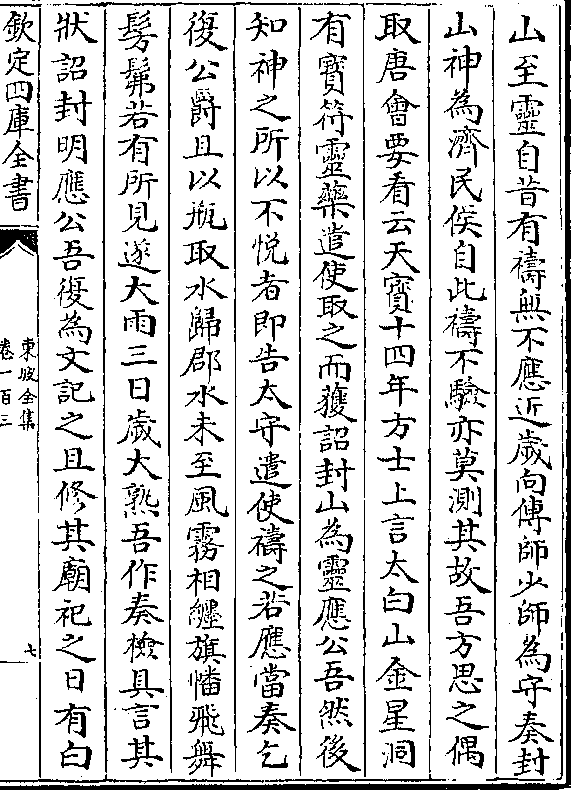 山至靈自昔有禱無不應近歲向傅師少師為守奏封
山神為濟民侯自此禱不驗亦莫測其故吾方思之偶
取唐會要看云天寶十四年方士上言太白山金星洞
有寶符靈藥遣使取之而獲詔封山為靈應公吾然後
知神之所以不悅者即告太守遣使禱之若應當奏乞
復公爵且以瓶取水歸郡水未至風霧相纒旗幡飛舞
髣髴若有所見遂大雨三日歲大熟吾作奏檢具言其
狀詔封明應公吾復為文記之且修其廟祀之日有白
欽定四庫全書
東坡全集
卷一百三
七